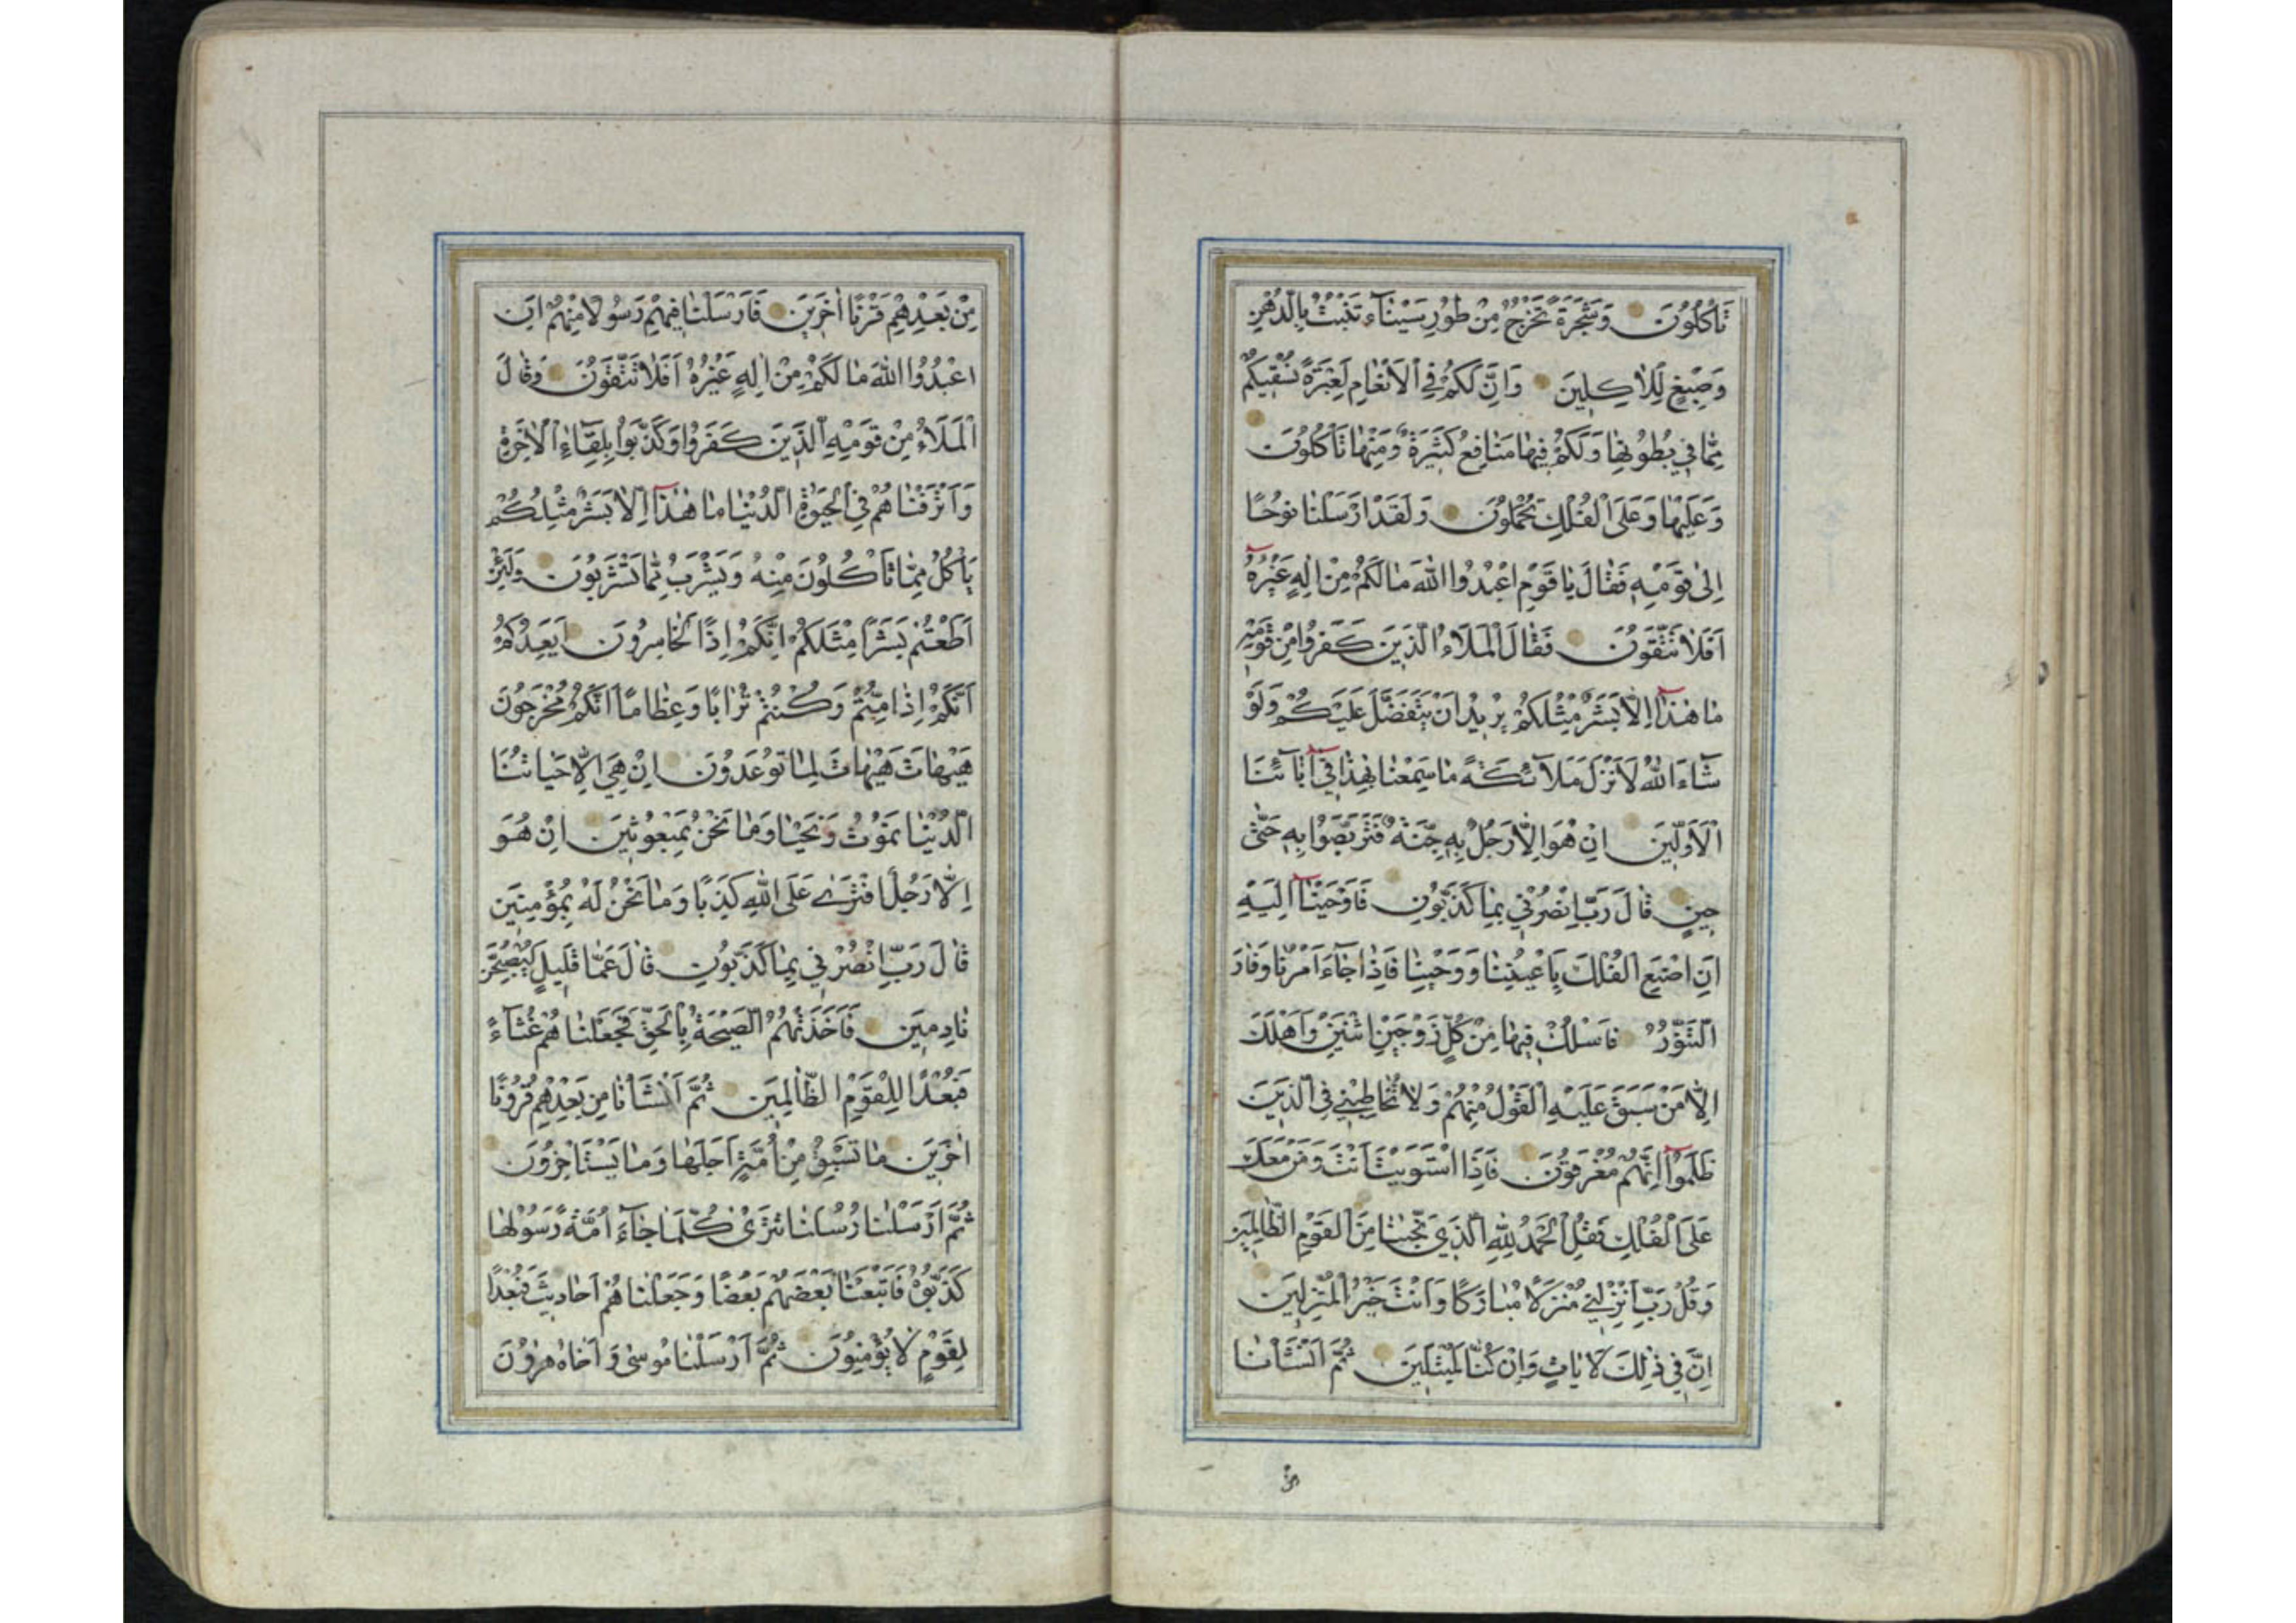 تَأْكُلُونَ وَشَجَرَةً تَخْرُجُ مِنْ طُورِ سَيْنَاءَ تَنْبُتُ بِالدُّهْنِ
وَصِبْغٍ لِلْاٰكِلِينَ وَاِنَّ لَكُمْ فِي الْاَنْعَامِ لَعِبْرَةً نُسْقِيكُمْ
مِمَّا فِي بُطُونِهَا وَلَكُمْ فِيهَا مَنَافِعُ كَثِيرَةٌ وَمِنْهَا تَأْكُلُونَ
وَعَلَيْهَا وَعَلَى الْفُلْكِ تُحْمَلُونَ وَلَقَدْ اَرْسَلْنَا نُوحًا
اِلٰى قَوْمِهِ فَقَالَ يَا قَوْمِ اعْبُدُوا اللّٰهَ مَا لَكُمْ مِنْ اِلٰهٍ غَيْرُهُ
اَفَلَا تَتَّقُونَ فَقَالَ الْمَلَاُ الَّذِينَ كَفَرُوا مِنْ قَوْمِهِ
مَا هٰذَا اِلَّا بَشَرٌ مِثْلُكُمْ يُرِيدُ اَنْ يَتَفَضَّلَ عَلَيْكُمْ وَلَوْ
شَاءَ اللّٰهُ لَاَنْزَلَ مَلَائِكَةً مَا سَمِعْنَا بِهٰذَا فِي اٰبَائِنَا
الْاَوَّلِينَ اِنْ هُوَ اِلَّا رَجُلٌ بِهِ جِنَّةٌ فَتَرَبَّصُوا بِهِ حَتّٰى
حِينٍ قَالَ رَبِّ انْصُرْنِي بِمَا كَذَّبُونِ فَاَوْحَيْنَا اِلَيْهِ
اَنِ اصْنَعِ الْفُلْكَ بِاَعْيُنِنَا وَوَحْيِنَا فَاِذَا جَاءَ اَمْرُنَا وَفَارَ
التَّنُّورُ فَاسْلُكْ فِيهَا مِنْ كُلٍّ زَوْجَيْنِ اثْنَيْنِ وَاَهْلَكَ
اِلَّا مَنْ سَبَقَ عَلَيْهِ الْقَوْلُ مِنْهُمْ وَلَا تُخَاطِبْنِي فِي الَّذِينَ
ظَلَمُوا اِنَّهُمْ مُغْرَقُونَ فَاِذَا اسْتَوَيْتَ اَنْتَ وَمَنْ مَعَكَ
عَلَى الْفُلْكِ فَقُلِ الْحَمْدُ لِلّٰهِ الَّذِي نَجّٰينَا مِنَ الْقَوْمِ الظَّالِمِينَ
وَقُلْ رَبِّ اَنْزِلْنِي مُنْزَلًا مُبَارَكًا وَاَنْتَ خَيْرُ الْمُنْزِلِينَ
اِنَّ فِي ذٰلِكَ لَاٰيَاتٍ وَاِنْ كُنَّا لَمُبْتَلِينَ ثُمَّ اَنْشَأْنَا
مِنْ
مِنْ بَعْدِهِمْ قَرْنًا اٰخَرِينَ فَاَرْسَلْنَا فِيهِمْ رَسُولًا مِنْهُمْ اَنِ
اعْبُدُوا اللّٰهَ مَا لَكُمْ مِنْ اِلٰهٍ غَيْرُهُ اَفَلَا تَتَّقُونَ وَقَالَ
الْمَلَاُ مِنْ قَوْمِهِ الَّذِينَ كَفَرُوا وَكَذَّبُوا بِلِقَاءِ الْاٰخِرَةِ
وَاَتْرَفْنَاهُمْ فِي الْحَيٰوةِ الدُّنْيَا مَا هٰذَا اِلَّا بَشَرٌ مِثْلُكُمْ
يَأْكُلُ مِمَّا تَأْكُلُونَ مِنْهُ وَيَشْرَبُ مِمَّا تَشْرَبُونَ وَلَئِنْ
اَطَعْتُمْ بَشَرًا مِثْلَكُمْ اِنَّكُمْ اِذًا لَخَاسِرُونَ اَيَعِدُكُمْ
اَنَّكُمْ اِذَا مِتُّمْ وَكُنْتُمْ تُرَابًا وَعِظَامًا اَنَّكُمْ مُخْرَجُونَ
هَيْهَاتَ هَيْهَاتَ لِمَا تُوعَدُونَ اِنْ هِيَ اِلَّا حَيَاتُنَا
الدُّنْيَا نَمُوتُ وَنَحْيَا وَمَا نَحْنُ بِمَبْعُوثِينَ اِنْ هُوَ
اِلَّا رَجُلٌ افْتَرٰى عَلَى اللّٰهِ كَذِبًا وَمَا نَحْنُ لَهُ بِمُؤْمِنِينَ
قَالَ رَبِّ انْصُرْنِي بِمَا كَذَّبُونِ قَالَ عَمَّا قَلِيلٍ لَيُصْبِحُنَّ
نَادِمِينَ فَاَخَذَتْهُمُ الصَّيْحَةُ بِالْحَقِّ فَجَعَلْنَاهُمْ غُثَاءً
فَبُعْدًا لِلْقَوْمِ الظَّالِمِينَ ثُمَّ اَنْشَأْنَا مِنْ بَعْدِهِمْ قُرُونًا
اٰخَرِينَ مَا تَسْبِقُ مِنْ اُمَّةٍ اَجَلَهَا وَمَا يَسْتَأْخِرُونَ
ثُمَّ اَرْسَلْنَا رُسُلَنَا تَتْرٰى كُلَّمَا جَاءَ اُمَّةً رَسُولُهَا
كَذَّبُوهُ فَاَتْبَعْنَا بَعْضَهُمْ بَعْضًا وَجَعَلْنَاهُمْ اَحَادِيثَ فَبُعْدًا
لِقَوْمٍ لَا يُؤْمِنُونَ ثُمَّ اَرْسَلْنَا مُوسٰى وَاَخَاهُ هٰرُونَ